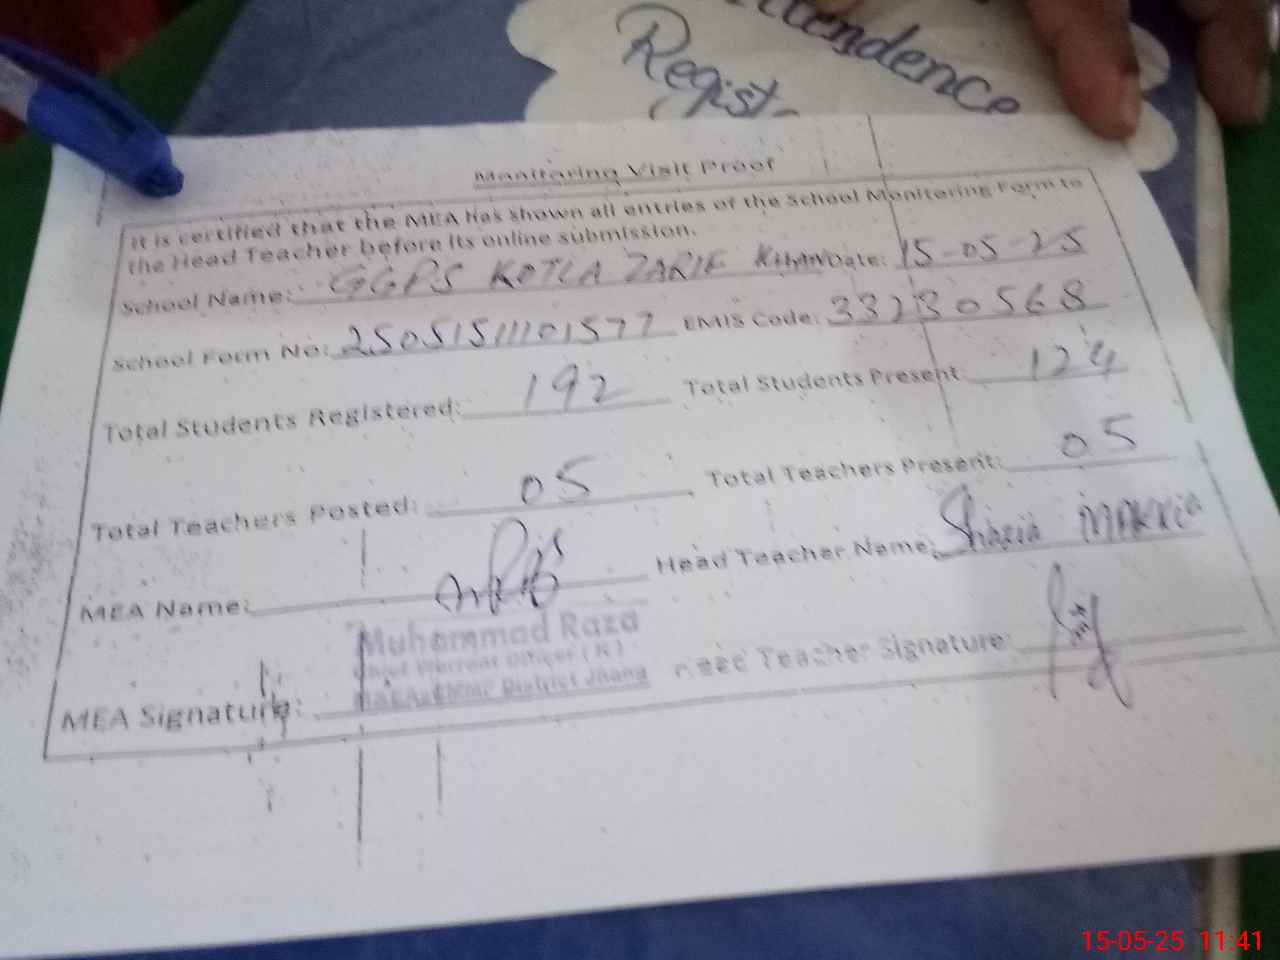 ttendence
Regist-
Monitoring Visit Proof
It is certified that the MEA has shown all entries of the School Monitoring Form to
the Head Teacher before its online submission.
School Name: GGPS KOTLA ZARIF KHAN Date: 15-05-25
School Form No: 25051511101577 EMIS Code: 33230568
Total Students Registered: 192 Total Students Present: 124
Total Teachers Posted: 05 Total Teachers Present: 05
MEA Name: Head Teacher Name: Shazia
Muhammad Raza
MEA Signature: District Jhang Head Teacher Signature:
15-05-25 11:41